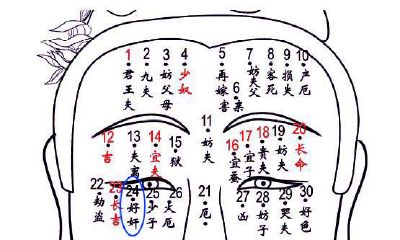 1 君王夫
2 九夫
3 妨父母
4 少奴
5 再嫁害
6 亲
7 妨夫父
8 客死
9 损夫
10 产厄
11 妨夫
12 吉
13 夫离
14 宜夫
15 狱
16 宜蚕
17 宜子
18 贵夫
19 妨夫
20 长命
21 厄
22 劫盗
23 长吉
24 好奸
25 子
26 火厄
27 凶
28 妨子
29 哭夫
30 好色